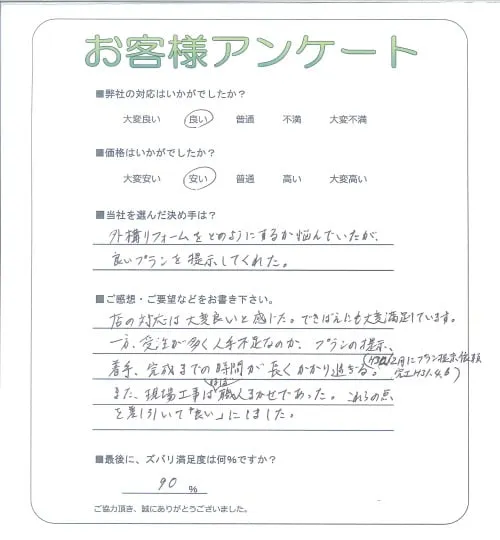 お客様アンケート
■弊社の対応はいかがでしたか？
大変良い 良い 普通 不満 大変不満
■価格はいかがでしたか？
大変安い 安い 普通 高い 大変高い
■当社を選んだ決め手は？
外構リフォームをどのようにするか悩んでいたが、
良いプランを提示してくれた。
■ご感想・ご要望などをお書き下さい。
店の対応は大変良いと感じた。できばえにも大変満足しています。
一方、受注が多く人手不足なのか、プランの提示、
着手、完成までの時間が長くかかり過ぎる。
月にプラン提示依頼
完工H31.4.6)
ほぼ
また、現場工事は職人まかせであった。これらの点
を差し引いて「良い」にしました。
■最後に、ズバリ満足度は何%ですか？
90 %
ご協力頂き、誠にありがとうございました。